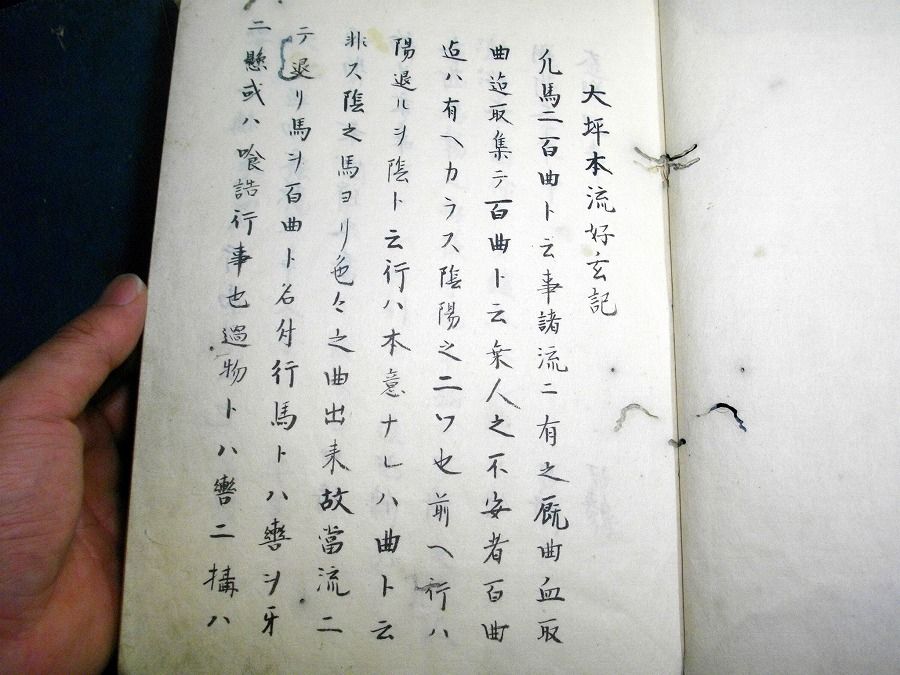 大坪本流好玄記
凡馬ニ百曲ト云事諸流ニ有之厩曲血取
曲迠取集テ百曲ト云乗人之不安者百曲
迠ハ有ヘカラス陰陽之二ツ也前ヘ行ハ
陽退ルヲ陰ト云行ハ本意ナレハ曲ト云
非ス陰之馬ヨリ色々之曲出来故當流ニ
テ退リ馬ヲ百曲ト名付行馬トハ轡ヲ牙
ニ懸或ハ喰誥行事也過物トハ轡ニ搆ハ